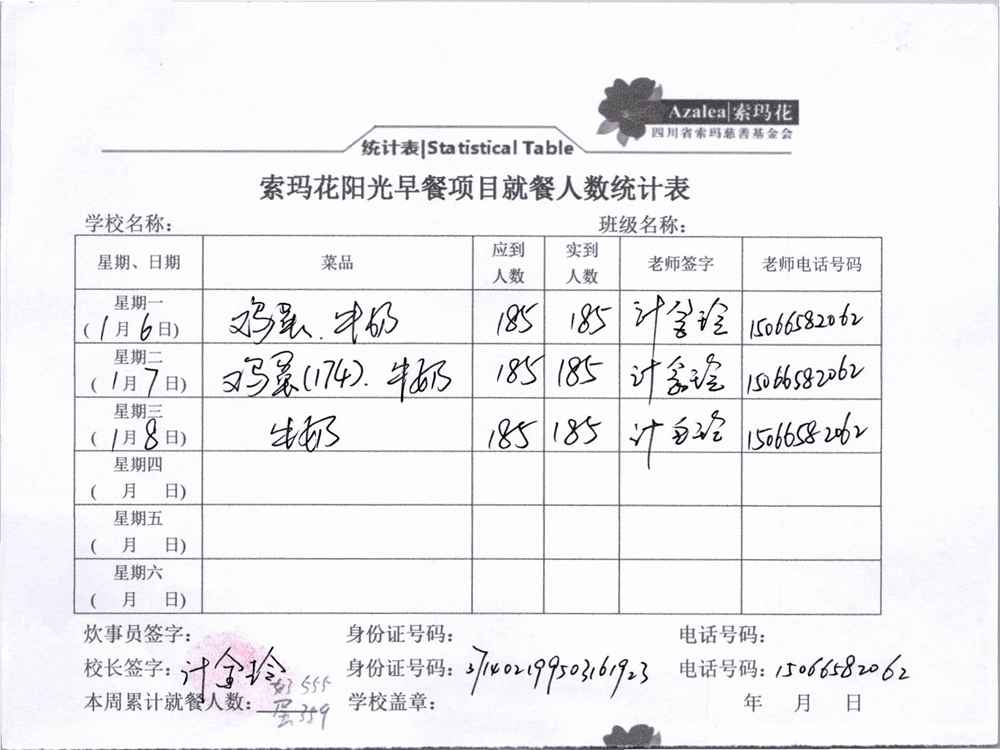 Azalea|索玛花
四川省索玛慈善基金会
统计表|Statistical Table
索玛花阳光早餐项目就餐人数统计表
学校名称: 班级名称:
星期、日期 菜品 应到人数 实到人数 老师签字 老师电话号码
星期一 (1月6日) 鸡蛋、牛奶 185 185 计金玲 15066582062
星期二 (1月7日) 鸡蛋(174)、牛奶 185 185 计金玲 15066582062
星期三 (1月8日) 牛奶 185 185 计金玲 15066582062
星期四 ( 月 日)
星期五 ( 月 日)
星期六 ( 月 日)
炊事员签字: 身份证号码: 电话号码:
校长签字: 计金玲 身份证号码: 371402199503161923 电话号码: 15066582062
本周累计就餐人数: 奶555 蛋359 学校盖章: 年 月 日